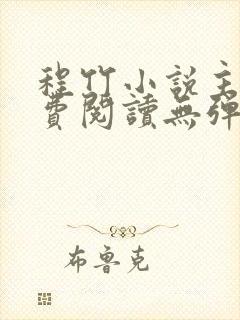 程竹小説主
費閱讀無彈
布魯克